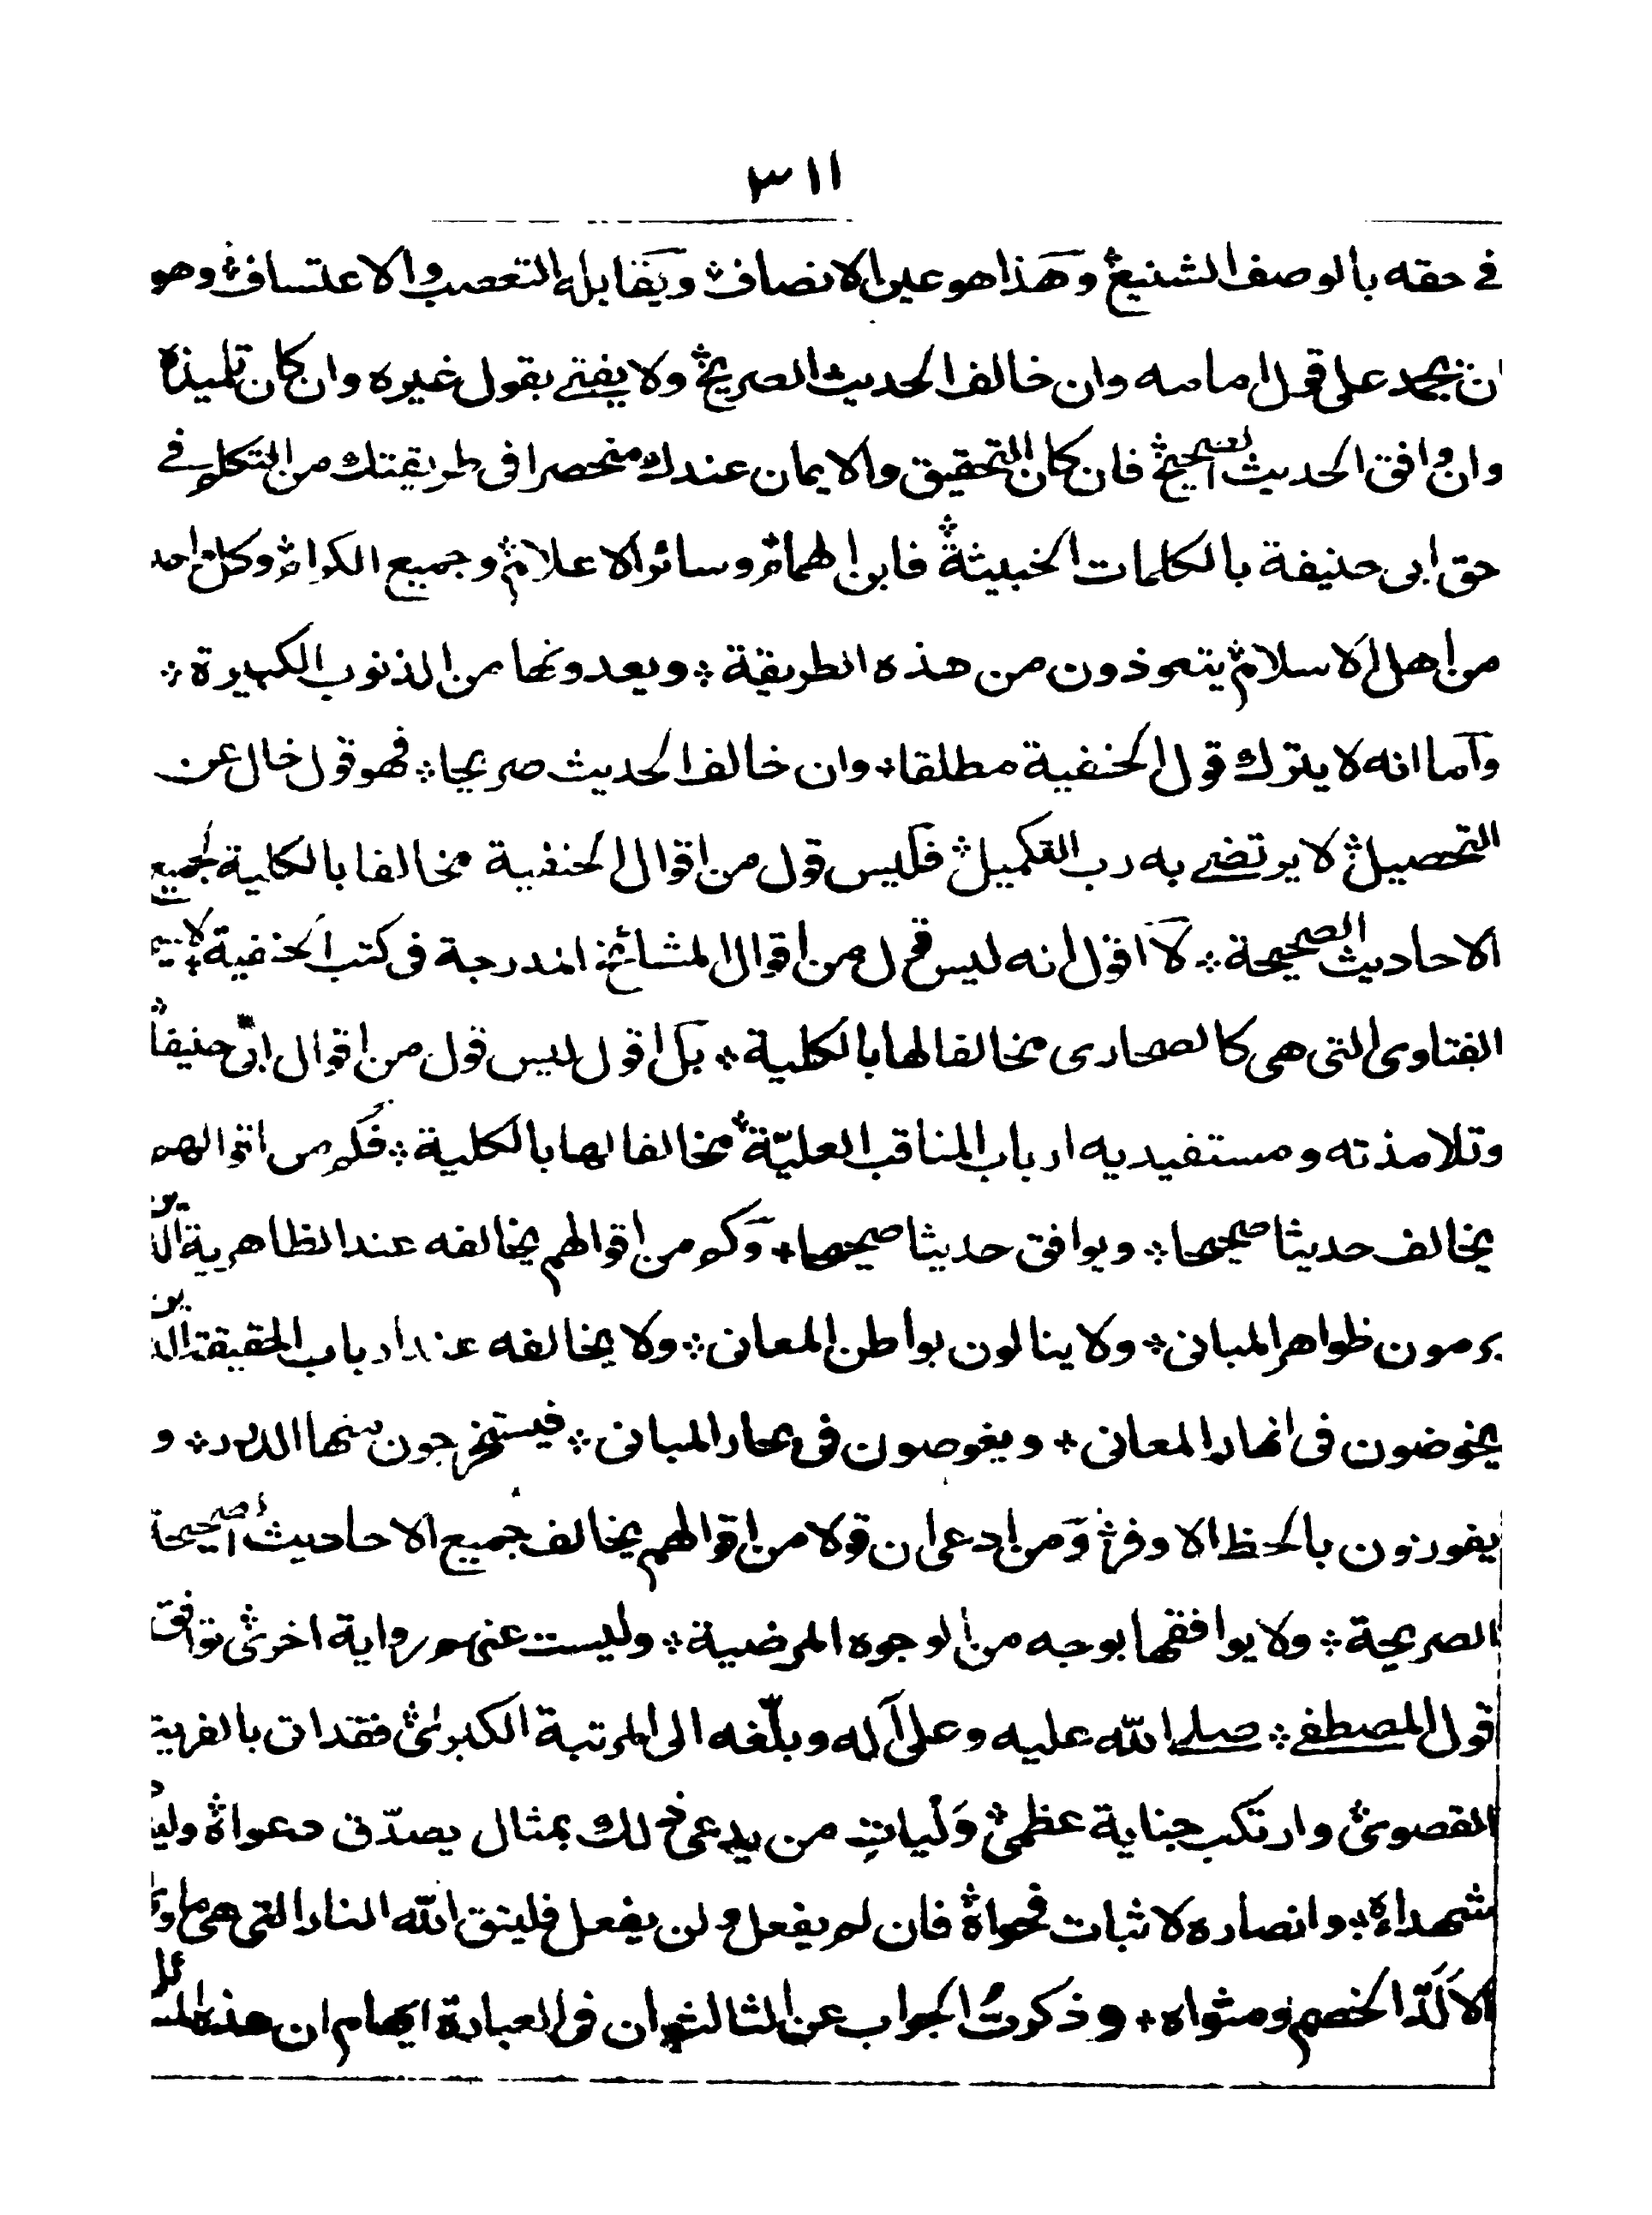 ٣١١
في حقه بالوصف الشنيع ÷ وهذا هو عين الانصاف ÷ ويقابله التعصب والاعتساف ÷ وهو
ان يجمد على قول امامه وان خالف الحديث الصريح ÷ ولا يفتى بقول غيره وان كان تلميذه
وان وافق الحديث الصحيح ÷ فان كان التحقيق والايمان عندك منحصرا فى طريقتك من التكلم في
حق ابى حنيفة بالكلمات الخبيثة ÷ فابن الهمام ÷ وسائر الاعلام ÷ وجميع الكرام ÷ وكل احد
من اهل الاسلام ÷ يتعوذون من هذه الطريقة ÷ ويعدونها من الذنوب الكبيرة ÷
وآما انه لا يترك قول الحنفية مطلقا ÷ وان خالف الحديث صريحا ÷ فهو قول خال عن
التحصيل ÷ لا يرتضى به رب التكميل ÷ فليس قول من اقوال الحنفية مخالفا بالكلية لجميع
الاحاديث الصحيحة ÷ لا اقول انه ليس قول من اقوال المشائخ المندرجة فى كتب الحنفية ÷ لا سيما
الفتاوى التى هى كالصحارى مخالفا لها بالكلية ÷ بل اقول ليس قول من اقوال ابى حنيفة ÷
وتلامذته ومستفيديه ارباب المناقب العليّة ÷ مخالفا لها بالكلية ÷ فكم من اقوالهم
يخالف حديثا صحيحا ÷ ويوافق حديثا صحيحا + وكم من اقوالهم يخالفه عند الظاهرية الذين
يرمون ظواهر المبانى ÷ ولا ينالون بواطن المعانى ÷ ولا يخالفه عند ارباب الحقيقة الذين
يخوضون فى انهار المعانى + ويغوصون فى بحار المبانى ÷ فيستخرجون منها الدرر ÷ و
يفوزون بالحظ الاوفر ÷ ومن ادعى ان قولا من اقوالهم يخالف جميع الاحاديث الصحيحة
الصريحة ÷ ولا يوافقها بوجه من الوجوه المرضية ÷ وليست عنهم رواية اخرى ÷ توافق
قول المصطفى ÷ صلى الله عليه وعلى آله وبلّغه الى المرتبة الكبرى ÷ فقد اتى بالفرية
القصوى ÷ وارتكب جناية عظمى ÷ وليات من يدعى ذلك بمثال يصدّق دعواه ÷ وليدع
شهداءه ÷ وانصاره لاثبات فحواه ÷ فان لم يفعل ولن يفعل فليتق الله النار التى هى ماوى
الالدّ الخصم ومثواه + وذكرتُ الجواب عن الثالث بان فى العبارة ايهام ان هذه المسائل